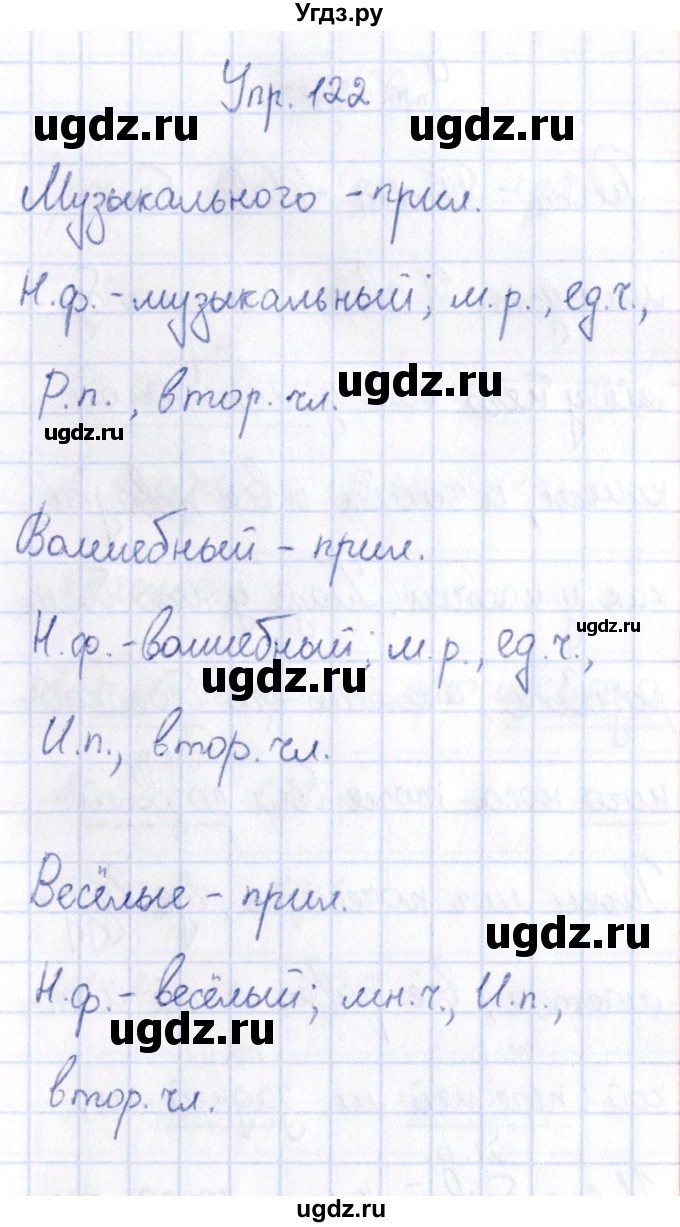 Угдз.ру
Упр. 122
ugdz.ru ugdz.ru
Музыкального - прил.
Н.ф. - музыкальный; м.р., ед.ч.,
ugdz.ru
Р.п., втор. чл.
ugdz.ru
Волшебный - прил.
ugdz.ru
Н.ф. - волшебный; м.р., ед.ч.,
ugdz.ru
И.п., втор. чл.
Весёлые - прил.
ugdz.ru
Н.ф. - весёлый; мн.ч., И.п.,
ugdz.ru
втор. чл.
ugdz.ru